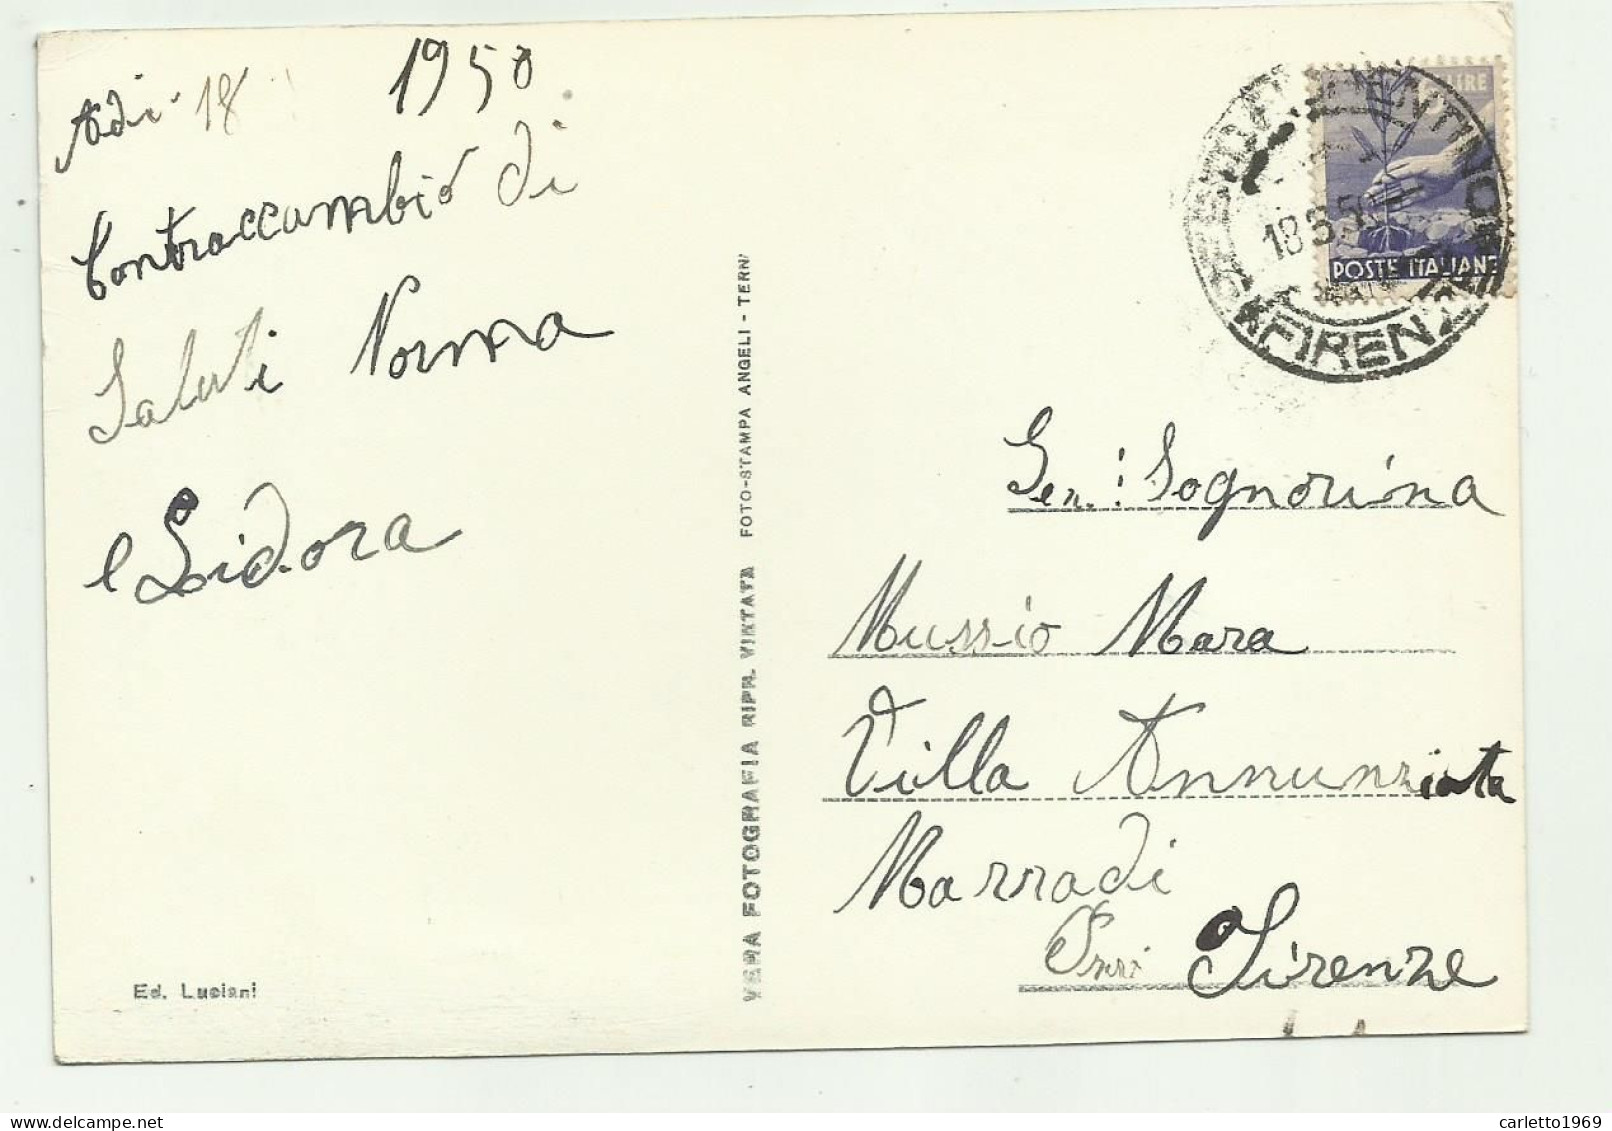 Adi 18 1950
Contraccambio di
Saluti Norma
e Lidora
Ed. Luciani
VERA FOTOGRAFIA RIPR. VIETATA FOTO-STAMPA ANGELI - TERNI
LIRE
POSTE ITALIANE
18 5 50
FIRENZE
Gen. : Sognorina
Mussio Mara
Villa Annunziata
Marradi
Firenze
carletto1969